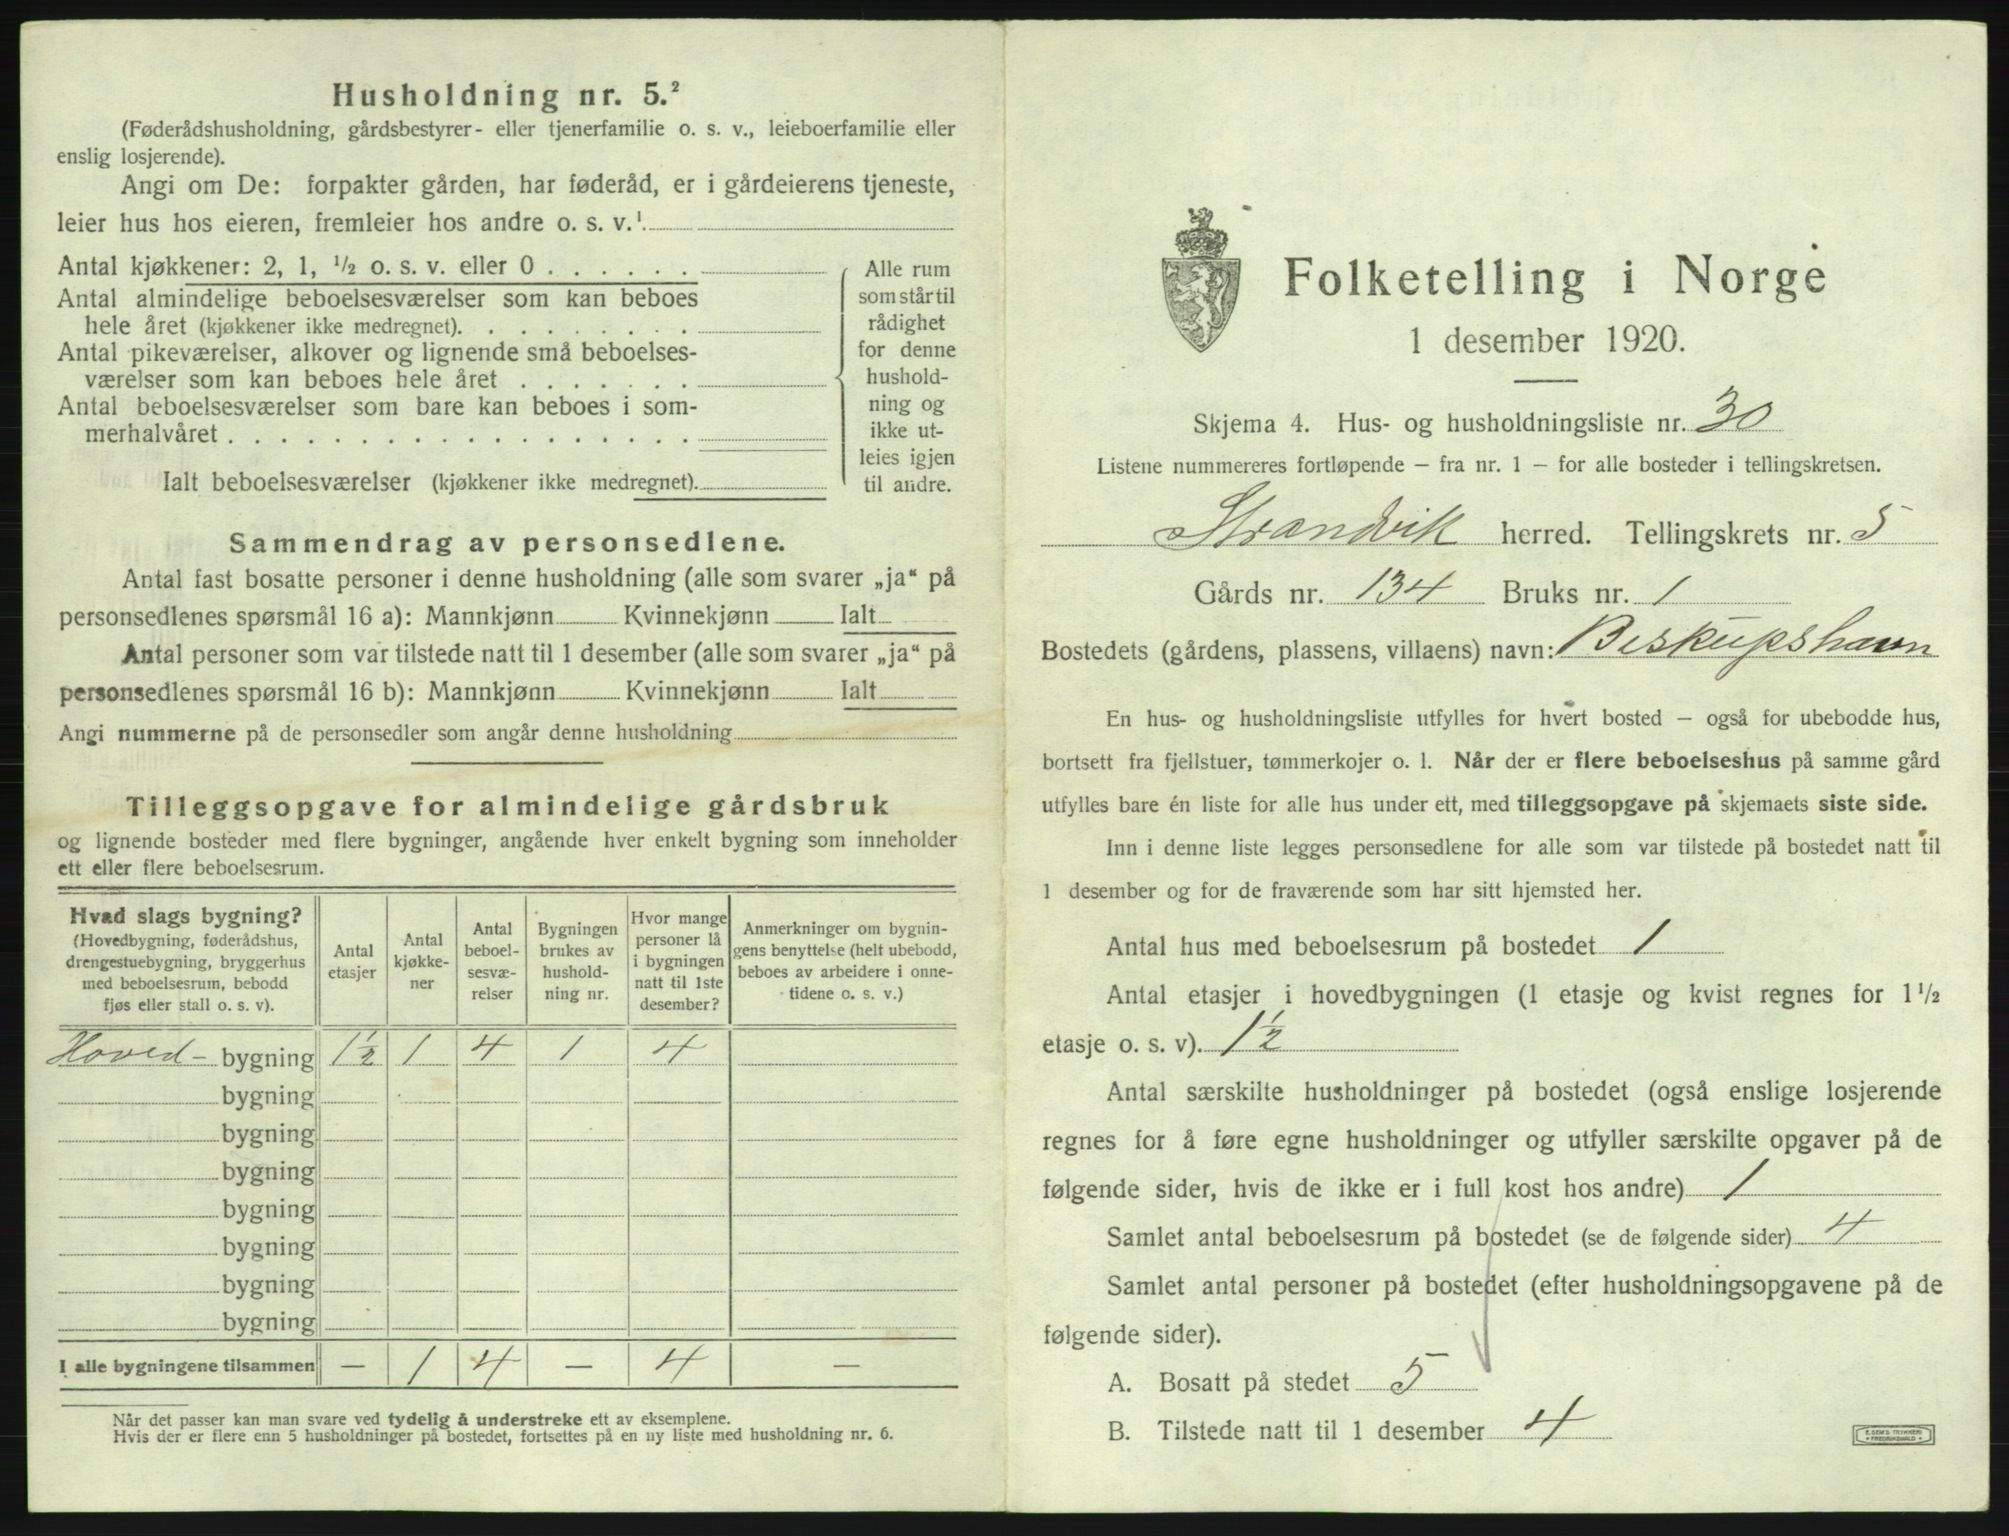 Husholdning nr. 5.²
(Føderådshusholdning, gårdsbestyrer- eller tjenerfamilie o. s. v., leieboerfamilie eller
enslig losjerende).
Angi om De: forpakter gården, har føderåd, er i gårdeierens tjeneste,
leier hus hos eieren, fremleier hos andre o. s. v.¹
Antal kjøkkener: 2, 1, ½ o. s. v. eller 0 . . . . . .
Antal almindelige beboelsesværelser som kan beboes
hele året (kjøkkener ikke medregnet). . . . . . . . .
Antal pikeværelser, alkover og lignende små beboelses-
værelser som kan beboes hele året . . . . . . .
Antal beboelsesværelser som bare kan beboes i som-
merhalvåret . . . . . . . . . . . . . . . . . .
Ialt beboelsesværelser (kjøkkener ikke medregnet).
Alle rum
som står til
rådighet
for denne
hushold-
ning og
ikke ut-
leies igjen
til andre.
Sammendrag av personsedlene.
Antal fast bosatte personer i denne husholdning (alle som svarer „ja“ på
personsedlenes spørsmål 16 a): Mannkjønn Kvinnekjønn Ialt
Antal personer som var tilstede natt til 1 desember (alle som svarer „ja“ på
personsedlenes spørsmål 16 b): Mannkjønn Kvinnekjønn Ialt
Angi nummerne på de personsedler som angår denne husholdning
Tilleggsopgave for almindelige gårdsbruk
og lignende bosteder med flere bygninger, angående hver enkelt bygning som inneholder
ett eller flere beboelsesrum.
Hvad slags bygning?
(Hovedbygning, føderådshus,
drengestuebygning, bryggerhus
med beboelsesrum, bebodd
fjøs eller stall o. s. v).
Antal
etasjer
Antal
kjøkke-
ner
Antal
beboel-
sesvæ-
relser
Bygningen
brukes av
hushold-
ning nr.
Hvor mange
personer lå
i bygningen
natt til 1ste
desember?
Anmerkninger om bygnin-
gens benyttelse (helt ubebodd,
beboes av arbeidere i onne-
tidene o. s. v.)
Hoved- bygning 1½ 1 4 1 4
bygning
bygning
bygning
bygning
bygning
bygning
bygning
I alle bygningene tilsammen — 1 4 — 4 —
Når det passer kan man svare ved tydelig å understreke ett av eksemplene.
Hvis der er flere enn 5 husholdninger på bostedet, fortsettes på en ny liste med husholdning nr. 6.
Folketelling i Norge
1 desember 1920.
Skjema 4. Hus- og husholdningsliste nr. 30
Listene nummereres fortløpende — fra nr. 1 — for alle bosteder i tellingskretsen.
Strandvik herred. Tellingskrets nr. 5
Gårds nr. 134 Bruks nr. 1
Bostedets (gårdens, plassens, villaens) navn: Biskupshavn
En hus- og husholdningsliste utfylles for hvert bosted — også for ubebodde hus,
bortsett fra fjellstuer, tømmerkojer o. l. Når der er flere beboelseshus på samme gård
utfylles bare én liste for alle hus under ett, med tilleggsopgave på skjemaets siste side.
Inn i denne liste legges personsedlene for alle som var tilstede på bostedet natt til
1 desember og for de fraværende som har sitt hjemsted her.
Antal hus med beboelsesrum på bostedet 1
Antal etasjer i hovedbygningen (1 etasje og kvist regnes for 1½
etasje o. s. v). 1½
Antal særskilte husholdninger på bostedet (også enslige losjerende
regnes for å føre egne husholdninger og utfyller særskilte opgaver på de
følgende sider, hvis de ikke er i full kost hos andre) 1
Samlet antal beboelsesrum på bostedet (se de følgende sider) 4
Samlet antal personer på bostedet (efter husholdningsopgavene på de
følgende sider).
A. Bosatt på stedet 5
B. Tilstede natt til 1 desember 4